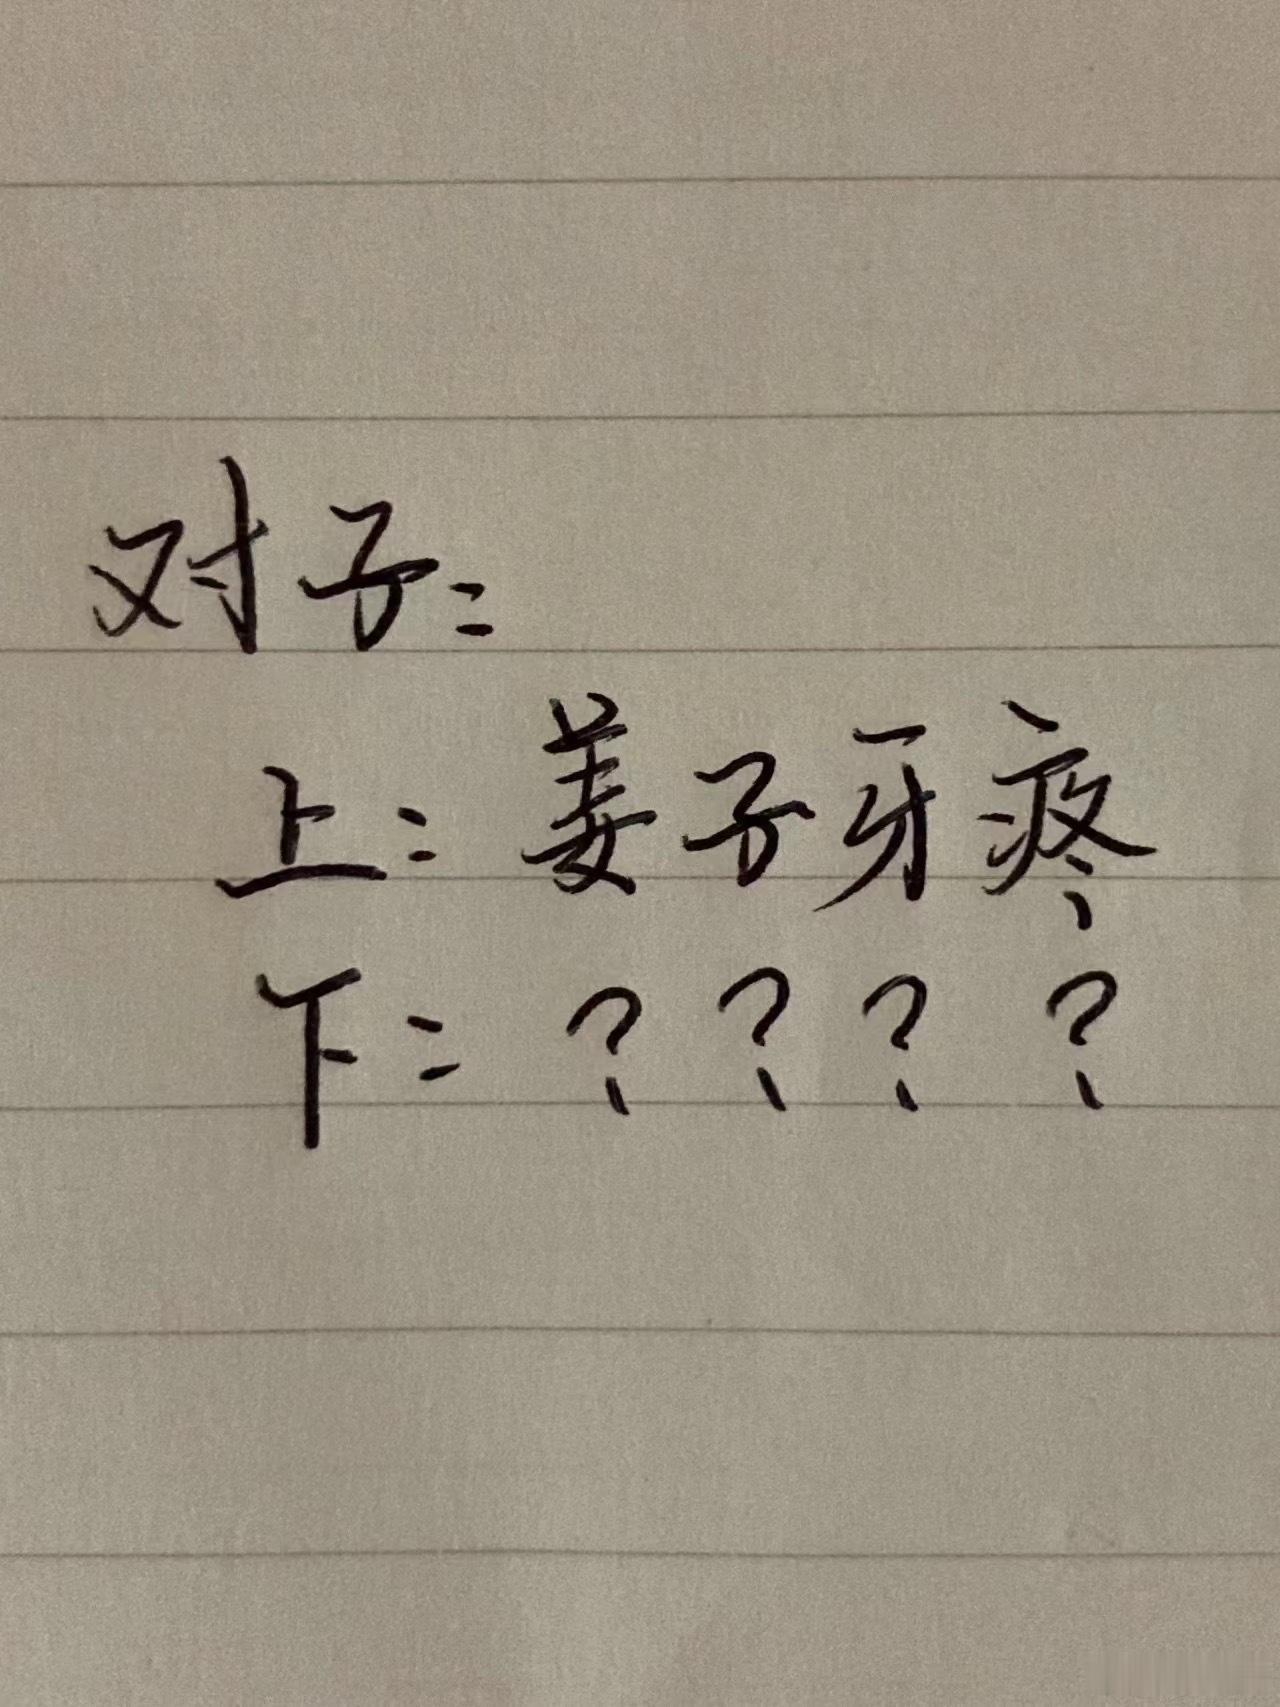 对子：
上：姜子牙疼
下：？？？？